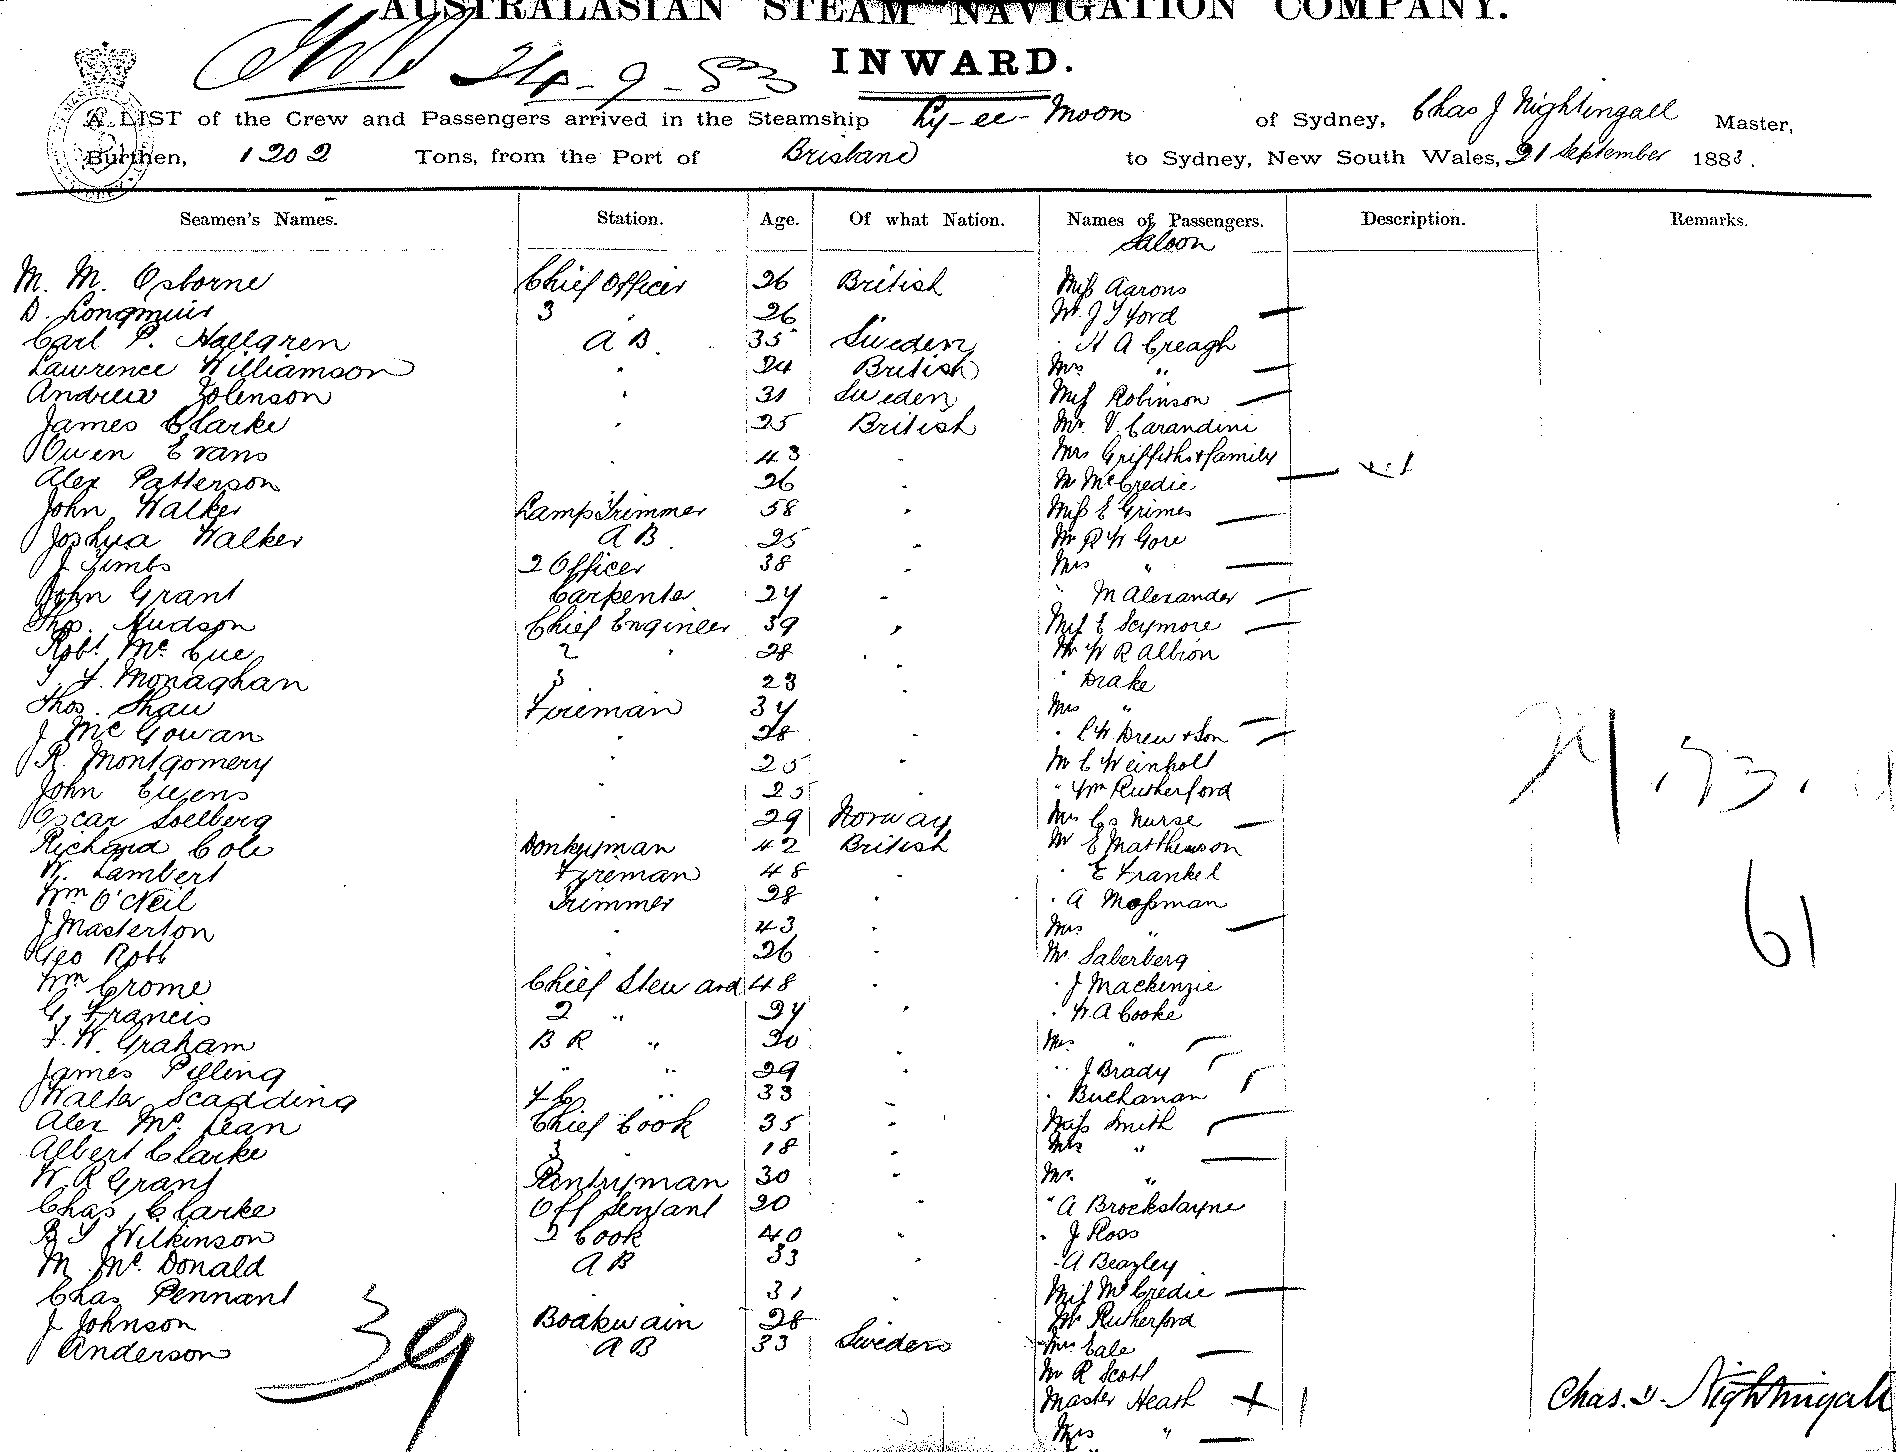 AUSTRALASIAN STEAM NAVIGATION COMPANY.
INWARD.
24-9-83
A LIST of the Crew and Passengers arrived in the Steamship Ly-ee-Moon of Sydney, Chas J Nightingall Master,
Burthen, 1202 Tons, from the Port of Brisbane to Sydney, New South Wales, 21 September 1883.
Seamen's Names. Station. Age. Of what Nation. Names of Passengers. Description. Remarks.
Saloon
M. M. Osborne Chief Officer 26 British Miss Aarons
D. Longmuir 3 " 26 Mr. J T Ford
Carl P. Hallgren A B 35 Sweden " H A Creagh
Lawrence Williamson " 24 British Mrs "
Andrew Zolenson " 31 Sweden Miss Robinson
James Clarke " 25 British Mr. V. Carandini
Owen Evans " 43 " Mrs Griffiths & family
Alex Patterson 26 " Mr McCredie
John Walker Lamp Trimmer 58 " Miss E Grimes
Joshua Walker A B 25 " Mr R W Gore
J Timbs 2 Officer 38 " Mrs "
John Grant Carpenter 24 " " M Alexander
Thos. Hudson Chief Engineer 39 " Miss E Seymore
Robt. McCue 2 " 28 " Mr W R Albion
Monaghan 3 23 " " Drake
Thos. Shaw Fireman 34 Mrs "
J McGowan " 28 " " L W Drew & Son
R. Montgomery " 25 " Mr C Weinholt
John Ewens " 25 " Wm Rutherford
Oscar Solberg " 29 Norway Mrs Cs Nurse
Richard Cole Donkeyman 42 British Mr E Matthewson
W. Lambert Fireman 48 " " E Frankel
Wm O'Neil Trimmer 28 " " A Mossman
J Masterton " 43 " Mrs "
Geo Robb " 26 " Mr Saberberg
Wm Crome Chief Steward 48 " " J Mackenzie
G. Francis 2 " 24 " " W. A Cooke
F. W. Graham B R " 20 " Mrs "
James Pilling " " 29 " " J Brady
Walter Scadding F C " 33 " " Buchanan
Alex McLean Chief Cook 35 " Miss Smith
Albert Clarke 3 18 " Mrs "
W. R Grant Pantryman 30 " Mr. "
Chas Clarke Off Servant 20 " " A Brockstayne
Wilkinson 2 Cook 40 " " J Ross
M McDonald A B 33 " " A Beazley
Chas Pennant 31 " Miss McCredie
J Johnson Boatswain 28 Mr Rutherford
Anderson A B 33 Sweden Mrs Cale
Mr R Scott
Master Heath
Mrs "
39
61
Chas. J. Nightingall